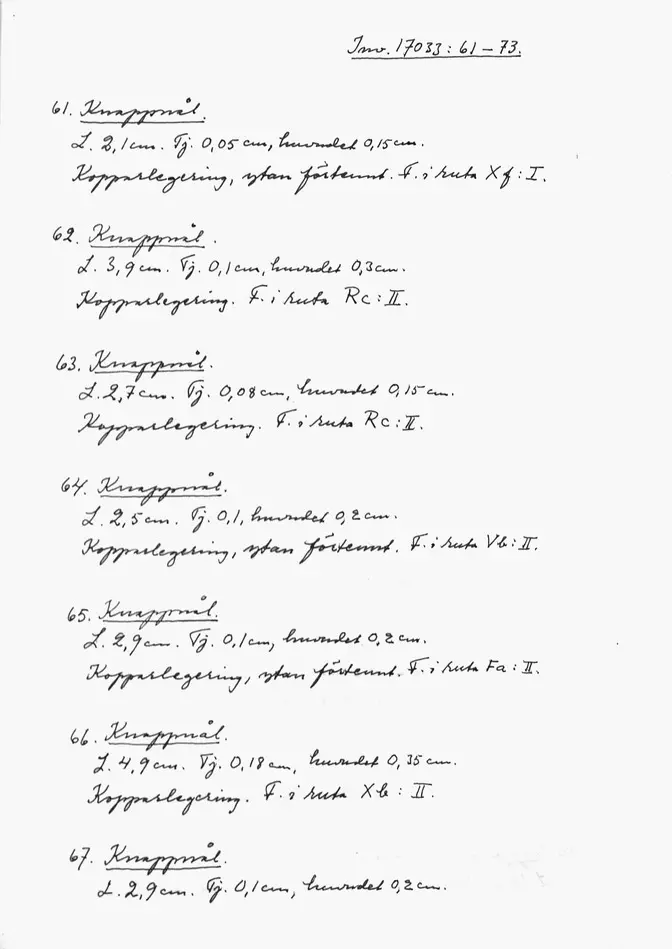 Inv. 17033: 61 – 73.
61. Knappnål.
L. 2,1 cm. Tj. 0,05 cm, huvudet 0,15 cm.
Kopparlegering, ytan förtennt. F. i ruta Xf: I.
62. Knappnål.
L. 3,9 cm. Tj. 0,1 cm, huvudet 0,3 cm.
Kopparlegering. F. i ruta Rc: II.
63. Knappnål.
L. 2,7 cm. Tj. 0,08 cm, huvudet 0,15 cm.
Kopparlegering. F. i ruta Rc: II.
64. Knappnål.
L. 2,5 cm. Tj. 0,1, huvudet 0,2 cm.
Kopparlegering, ytan förtennt. F. i ruta Vb: II.
65. Knappnål.
L. 2,9 cm. Tj. 0,1 cm, huvudet 0,2 cm.
Kopparlegering, ytan förtennt. F. i ruta Fa: II.
66. Knappnål.
L. 4,9 cm. Tj. 0,18 cm, huvudet 0,35 cm.
Kopparlegering. F. i ruta Xb: II.
67. Knappnål.
L. 2,9 cm. Tj. 0,1 cm, huvudet 0,2 cm.